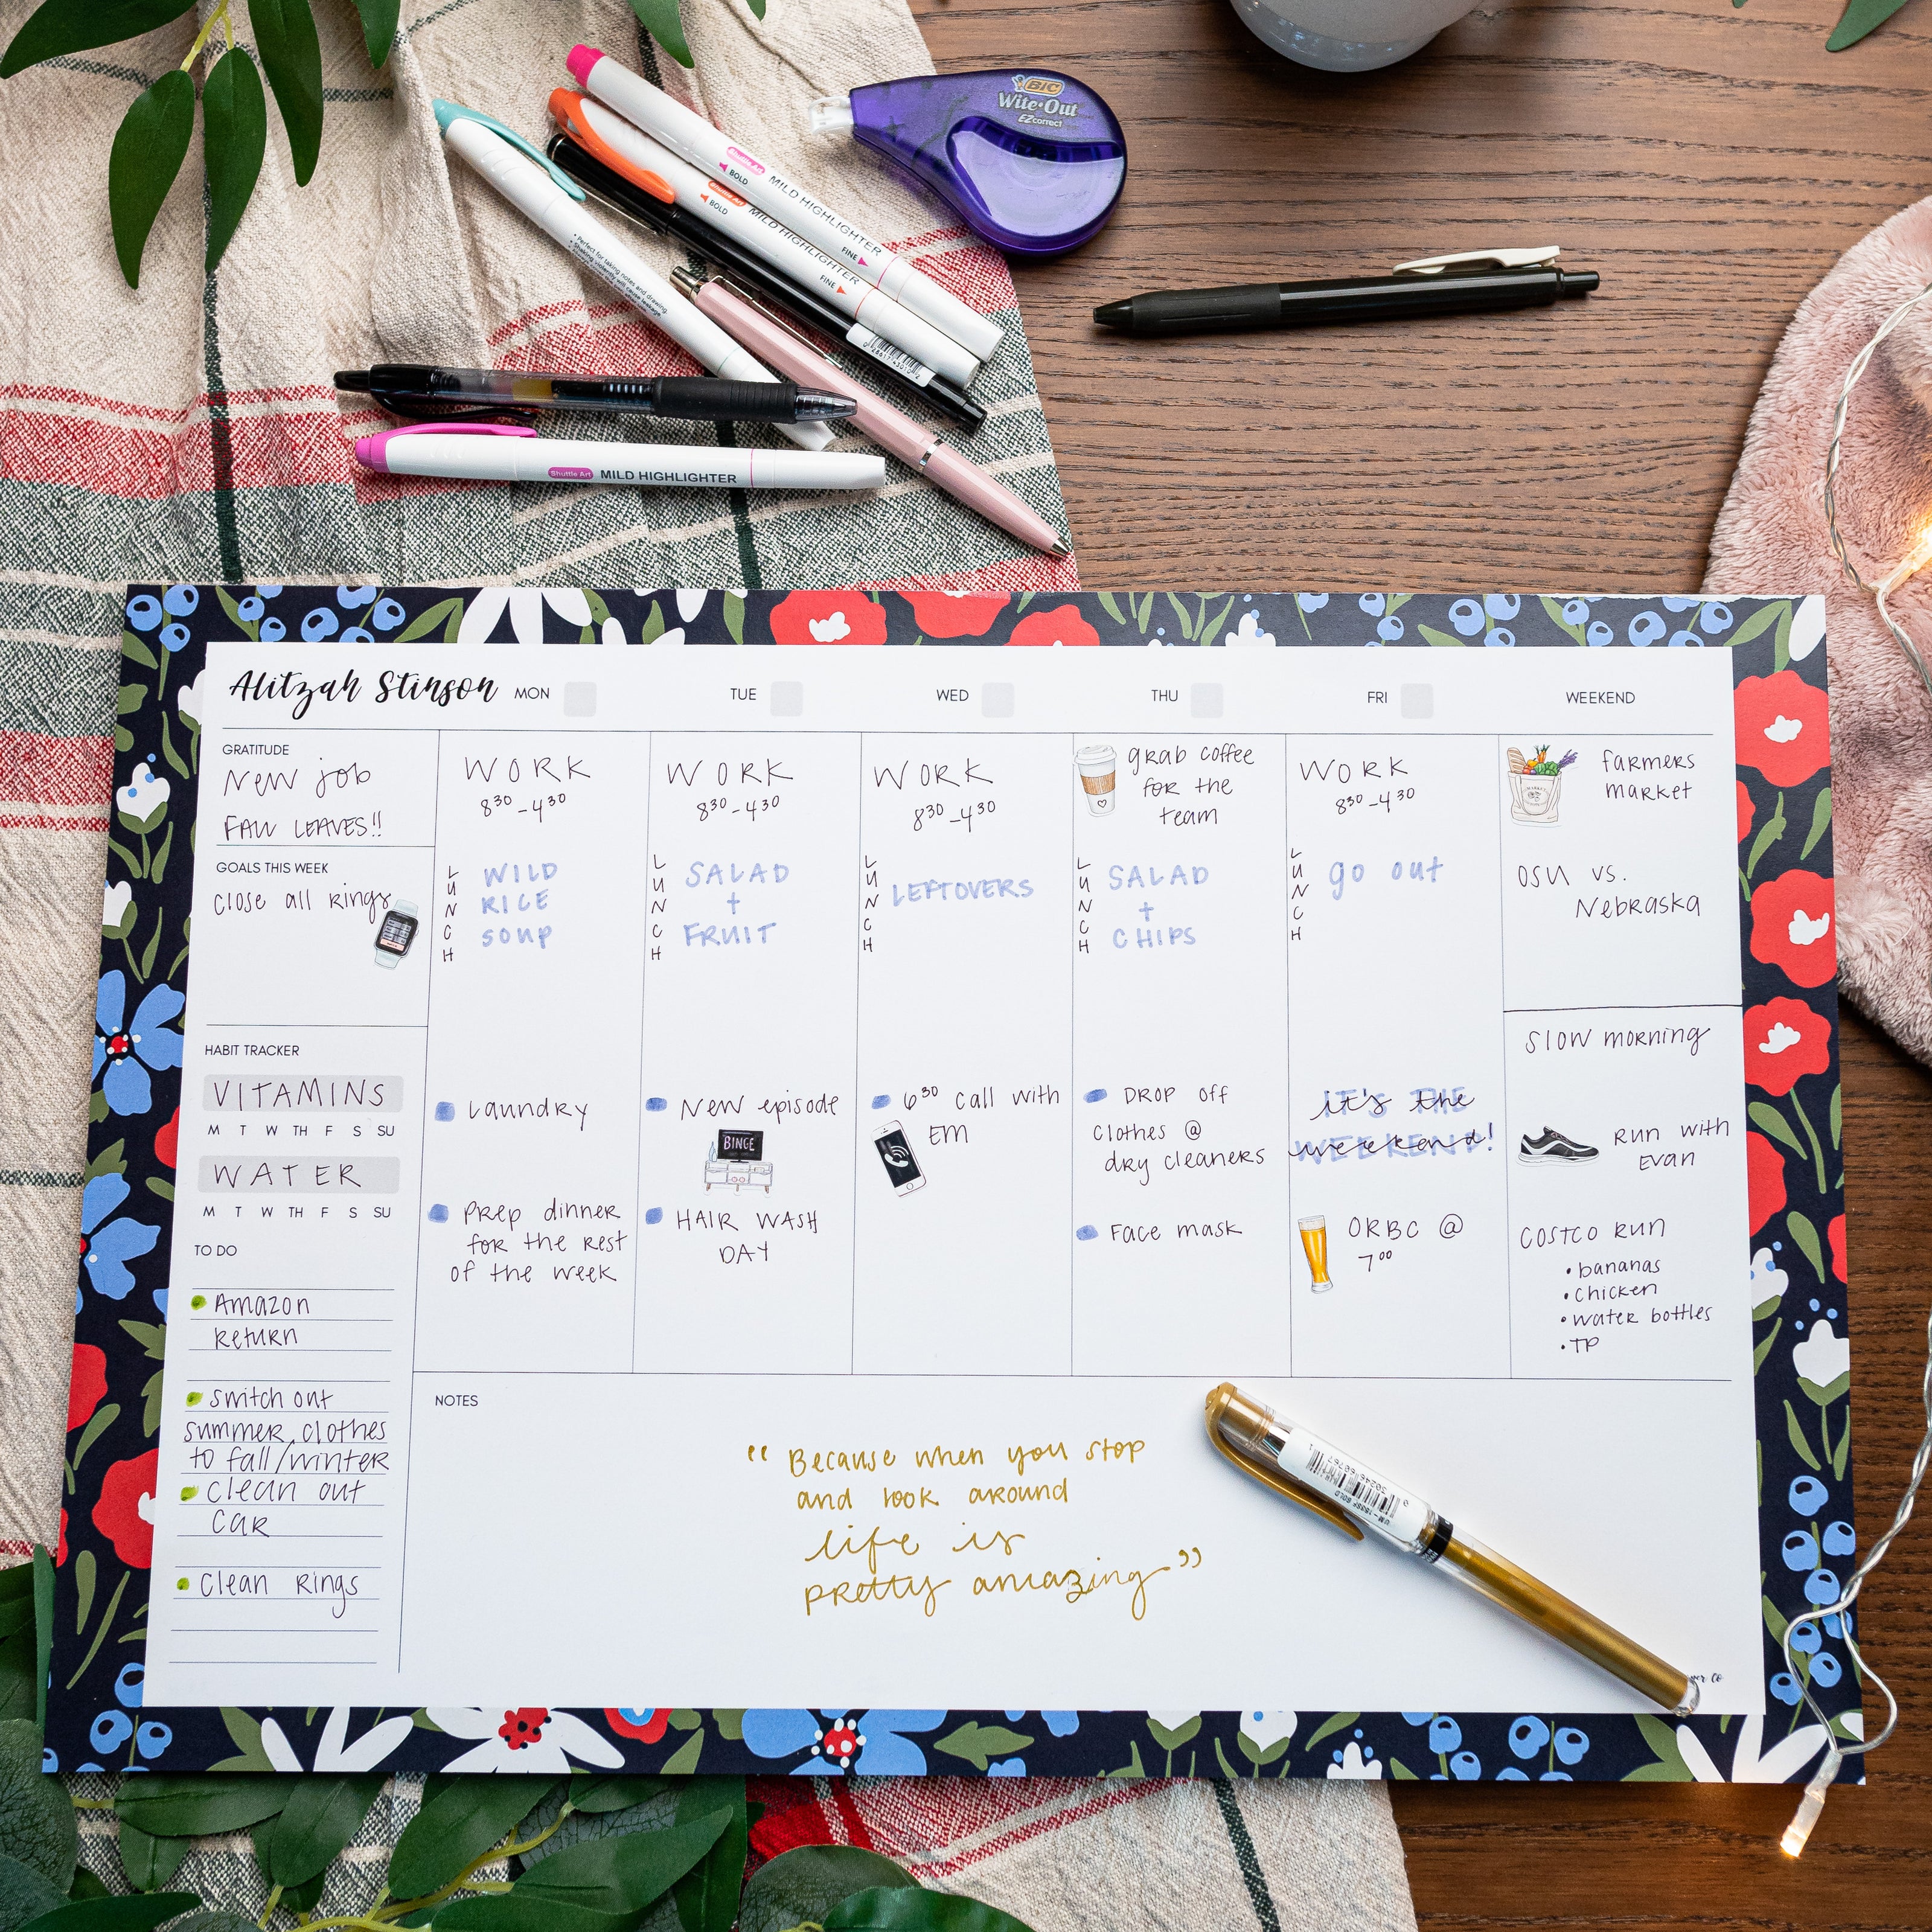 BIC
Wite·Out
EZcorrect
Shuttle Art
BOLD
MILD HIGHLIGHTER
FINE
Shuttle Art
BOLD
MILD HIGHLIGHTER
FINE
• Perfect for taking notes and drawing.
Shuttle Art MILD HIGHLIGHTER
Alitzah Stinson
MON
TUE
WED
THU
FRI
WEEKEND
GRATITUDE
New job
FALL LEAVES!!
GOALS THIS WEEK
close all rings
HABIT TRACKER
VITAMINS
M T W TH F S SU
WATER
M T W TH F S SU
TO DO
Amazon
return
switch out
summer clothes
to fall/winter
clean out
car
clean rings
WORK
830-430
LUNCH
WILD
RICE
SOUP
Laundry
Prep dinner
for the rest
of the week
WORK
830-430
LUNCH
SALAD
+
FRUIT
New episode
BINGE
HAIR WASH
DAY
WORK
830-430
LUNCH
LEFTOVERS
630 call with
EM
grab coffee
for the
team
LUNCH
SALAD
+
CHIPS
DROP off
clothes @
dry cleaners
Face mask
WORK
830-430
LUNCH
go out
IT'S THE
WEEKEND!
it's the
weekend!
ORBC @
700
farmers
market
OSU vs.
Nebraska
slow morning
Run with
Evan
COSTCO RUN
• bananas
• chicken
• water bottles
• TP
NOTES
“Because when you stop
and look around
life is
pretty amazing”